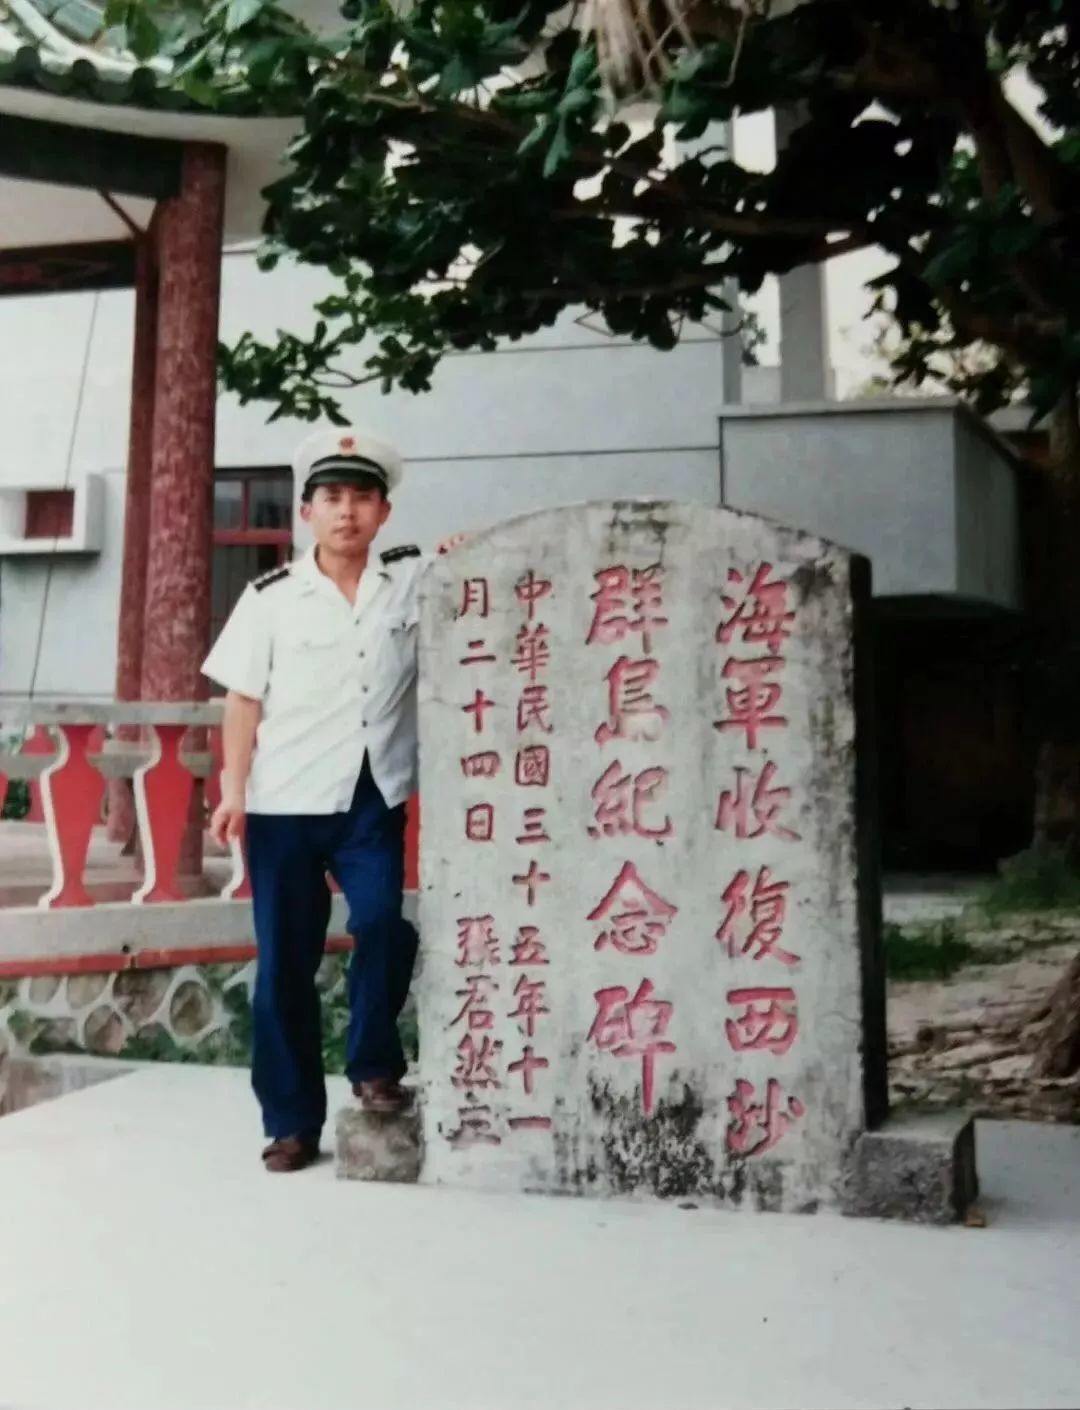 海軍收復西沙
群島紀念碑
中華民國三十五年十一
月二十四日 張君然立